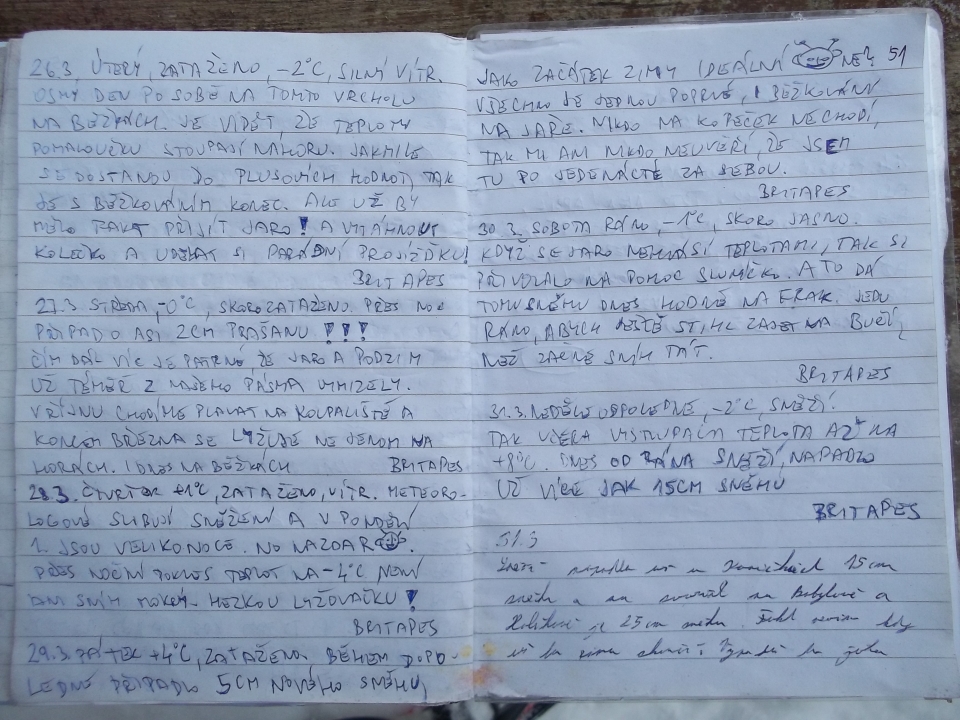 26.3, ÚTERÝ, ZATAŽENO, -2°C, SILNÝ VÍTR.
OSMÝ DEN PO SOBĚ NA TOMTO VRCHOLU
NA BĚŽKÁCH. JE VIDĚT, ŽE TEPLOTY
POMALOUČKU STOUPAJÍ NAHORU. JAKMILE
SE DOSTANOU DO PLUSOVÍCH HODNOT, TAK
JE S BĚŽKOVÁNÍM KONEC. ALE UŽ BY
MĚLO TAKY PŘIJÍT JARO! A VYTÁHNOUT
KOLEČKO A UDĚLAT SI PARÁDNÍ PROJÍŽĎKU!
BRITAPES
27.3 STŘEDA, -0°C, SKORO ZATAŽENO. PŘES NOC
PŘIPADO ASI 2CM PRAŠANU!!!
ČÍM DÁL VÍC JE PATRNÉ, ŽE JARO A PODZIM
UŽ TÉMĚŘ Z NAŠEHO PÁSMA VYMIZELY.
V ŘÍJNU CHODÍME PLAVAT NA KOUPALIŠTĚ A
KONCEM BŘEZNA SE LYŽUJE NEJENOM NA
HORÁCH. I DNES NA BĚŽKÁCH BRITAPES
28.3. ČTVRTEK +1°C, ZATAŽENO, VÍTR. METEORO-
LOGOVÉ SLIBUJÍ SNĚŽENÍ A V PONDĚLÍ
1. JSOU VELIKONOCE. NO NAZDAR.
PŘES NOČNÍ POKLES TEPLOT NA -4°C NENÍ
ANI SNÍH MOKEJ. HEZKOU LYŽOVAČKU!
BRITAPES
29.3. PÁTEK +4°C, ZATAŽENO. BĚHEM DOPO-
LEDNE PŘIPADLO 5CM NOVÉHO SNĚHU,
51
JAKO ZAČÁTEK ZIMY IDEÁLNÍ NE?
VŠECHNO JE JEDNOU POPRVÉ, I BĚŽKOVÁNÍ
NA JAŘE. NIKDO NA KOPEČEK NECHODÍ,
TAK MI ANI NIKDO NEUVĚŘÍ, ŽE JSEM
TU PO JEDENÁCTÉ ZA SEBOU.
BRITAPES
30.3. SOBOTA RÁNO, -1°C, SKORO JASNO.
KDYŽ SE JARO NEHLÁSÍ TEPLOTAMI, TAK SI
PŘIVOLALO NA POMOC SLUNÍČKO. A TO DÁ
TOMU SNĚHU DNES HODNĚ NA FRAK. JEDU
RÁNO, ABYCH JEŠTĚ STIHL ZAJET NA BUČÍ,
NEŽ ZAČNE SNÍH TÁT.
BRITAPES
31.3. NEDĚLE ODPOLEDNE, -2°C, SNĚŽÍ.
TAK VČERA VISTUPALA TEPLOTA AŽ NA
+8°C. DNES OD RÁNA SNĚŽÍ, NAPADLO
UŽ VÍCE JAK 15CM SNĚHU
BRITAPES
31.3
15 cm
sněhu a na a
je 25 cm sněhu.